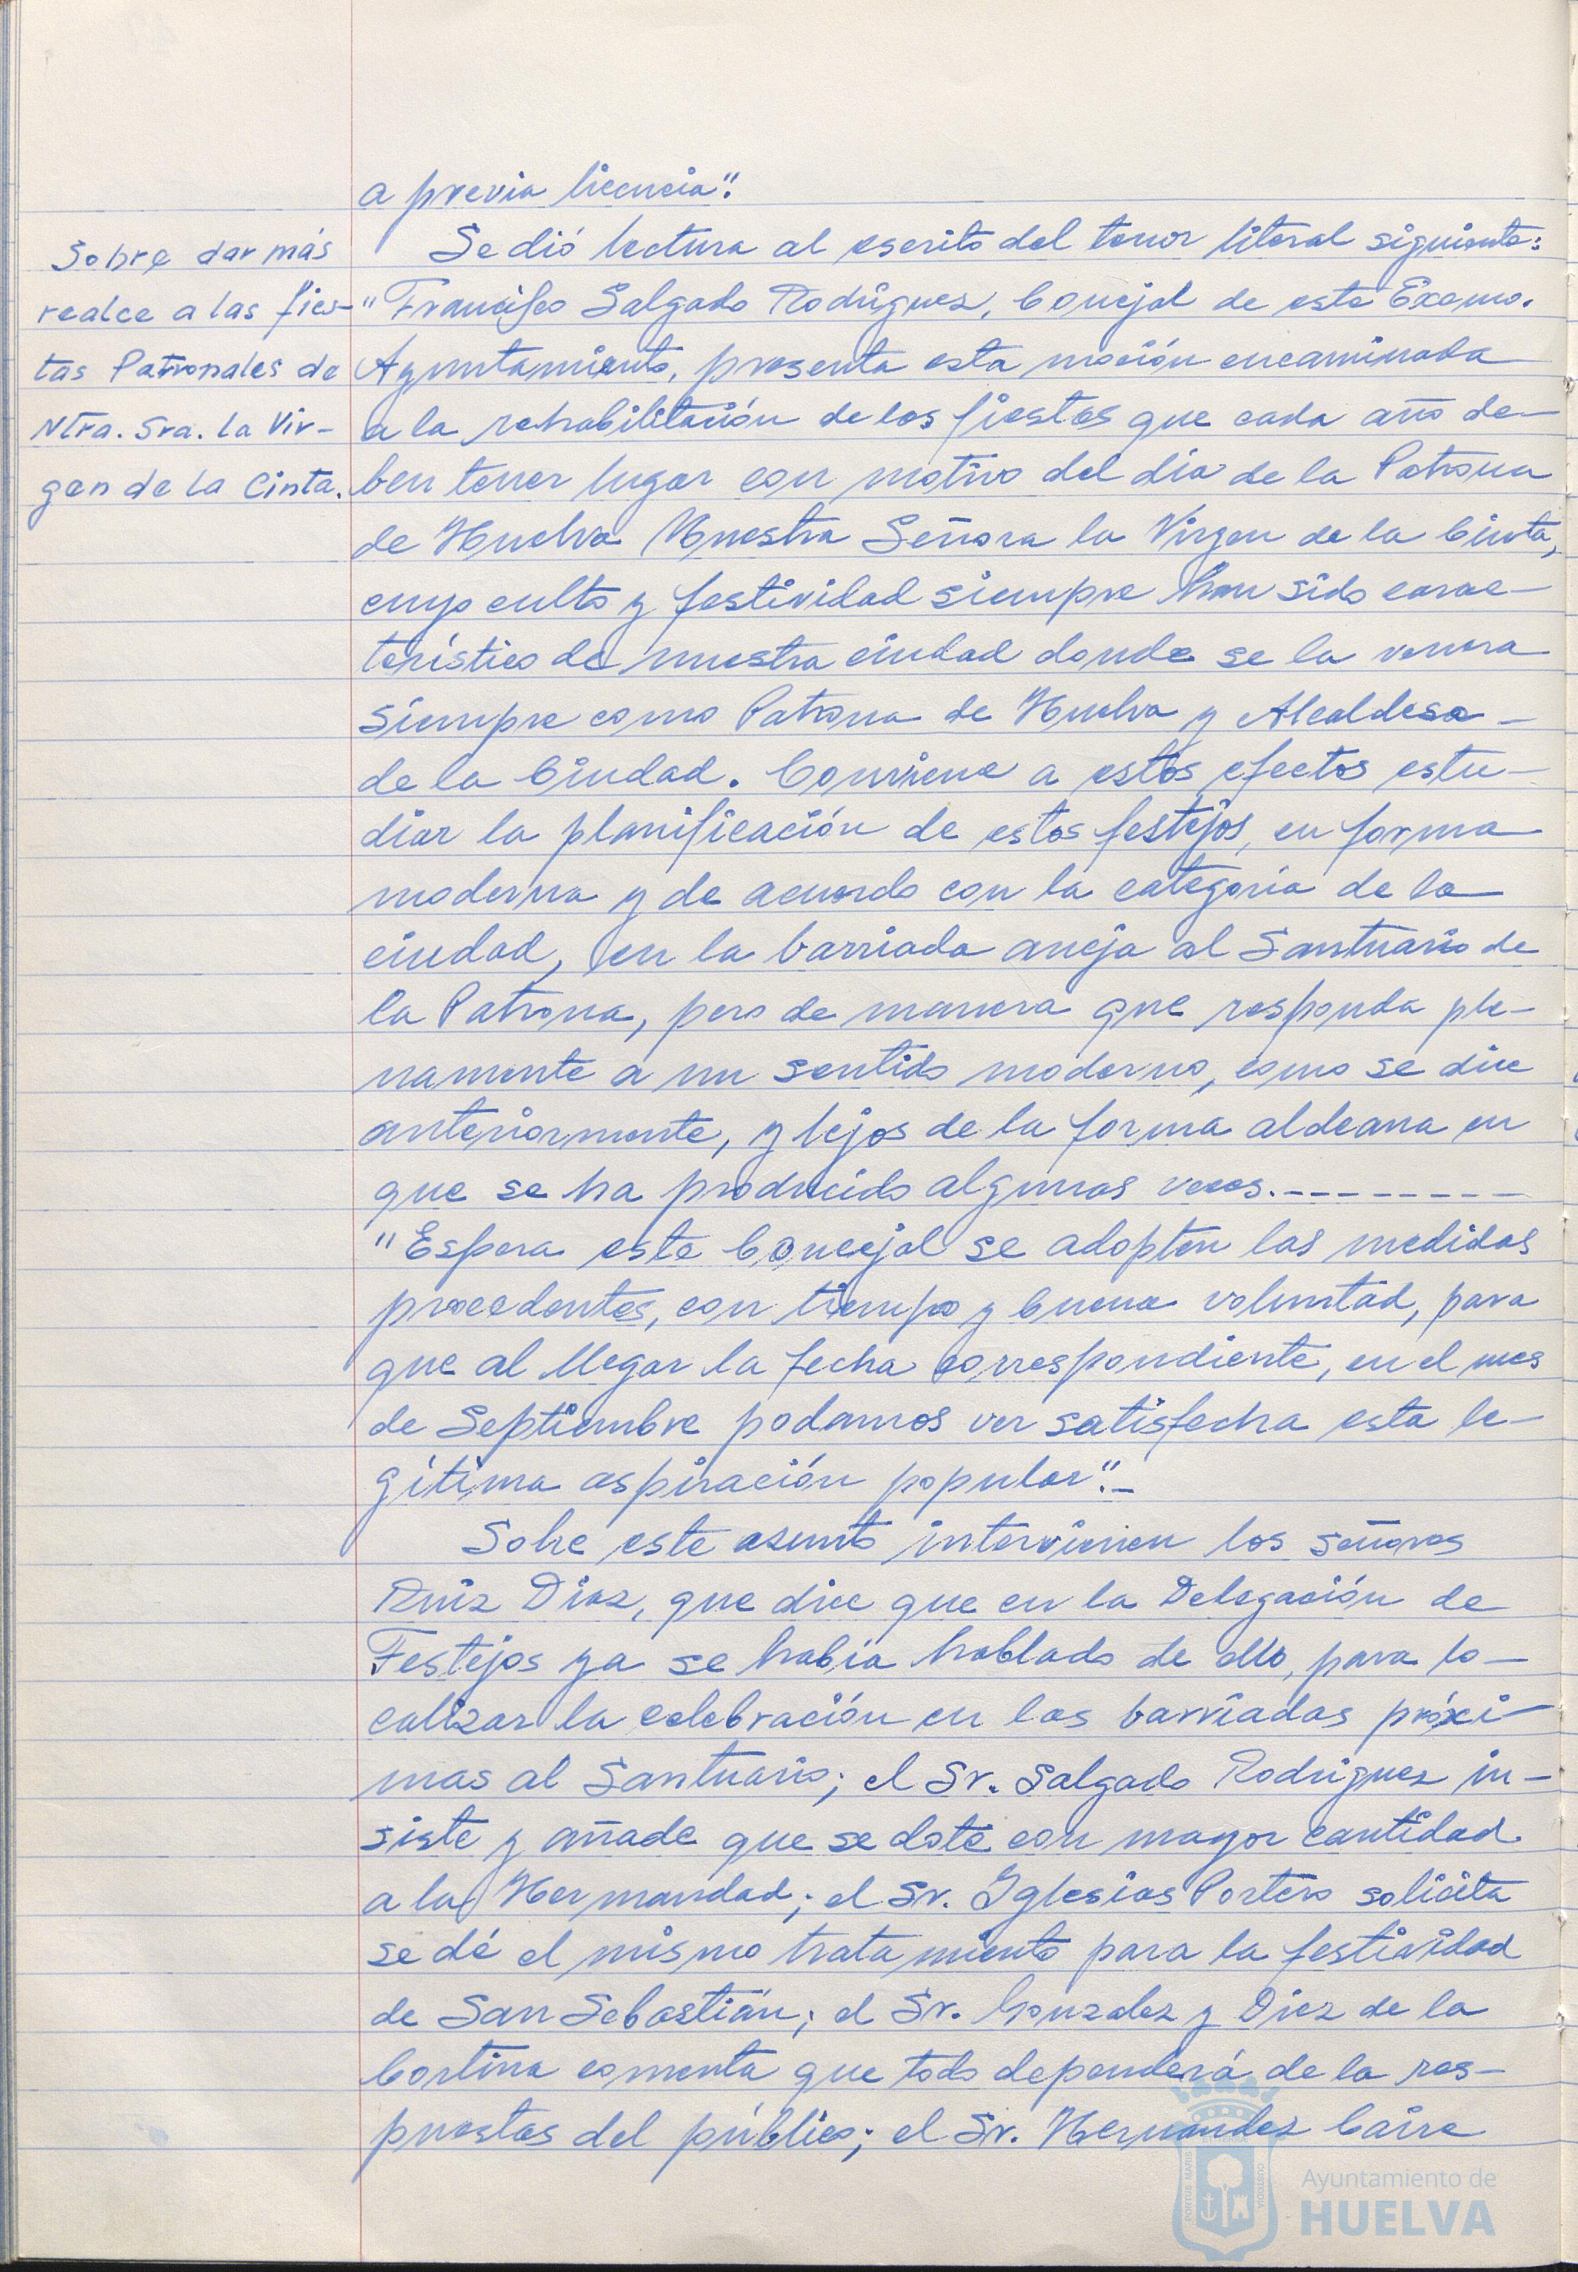 a previa licencia".
Sobre dar más
realce a las fies-
tas Patronales de
Ntra. Sra. la Vir-
gen de la Cinta.
Se dió lectura al escrito del tenor literal siguiente:
"Francisco Salgado Rodríguez, Concejal de este Excmo.
Ayuntamiento, presenta esta moción encaminada
a la rehabilitación de las fiestas que cada año de-
ben tener lugar con motivo del día de la Patrona
de Huelva Nuestra Señora la Virgen de la Cinta,
cuyo culto y festividad siempre han sido carac-
terístico de nuestra ciudad donde se la venera
siempre como Patrona de Huelva y Alcaldesa -
de la Ciudad. Conviene a estos efectos estu-
diar la planificación de estos festejos, en forma
moderna y de acuerdo con la categoría de la
ciudad, en la barriada aneja al Santuario de
la Patrona, pero de manera que responda ple-
namente a un sentido moderno, como se dice
anteriormente, y lejos de la forma aldeana en
que se ha producido algunas veces.---------
"Espera este Concejal se adopten las medidas
procedentes, con tiempo y buena voluntad, para
que al llegar la fecha correspondiente, en el mes
de Septiembre podamos ver satisfecha esta le-
gítima aspiración popular".-
Sobre este asunto intervienen los señores
Ruiz Diaz, que dice que en la Delegación de
Festejos ya se había hablado de ello, para lo-
calizar la celebración en las barriadas próxi-
mas al Santuario; el Sr. Salgado Rodriguez in-
siste y añade que se dote con mayor cantidad
a la Hermandad; el Sr. Iglesias Portero solicita
se dé el mismo tratamiento para la festividad
de San Sebastián; el Sr. Gonzalez y Diez de la
Cortina comenta que todo dependerá de la res-
puestas del público; el Sr. Hernandez Caire
PORTUS MARIS
CUSTODIA
Ayuntamiento de
HUELVA